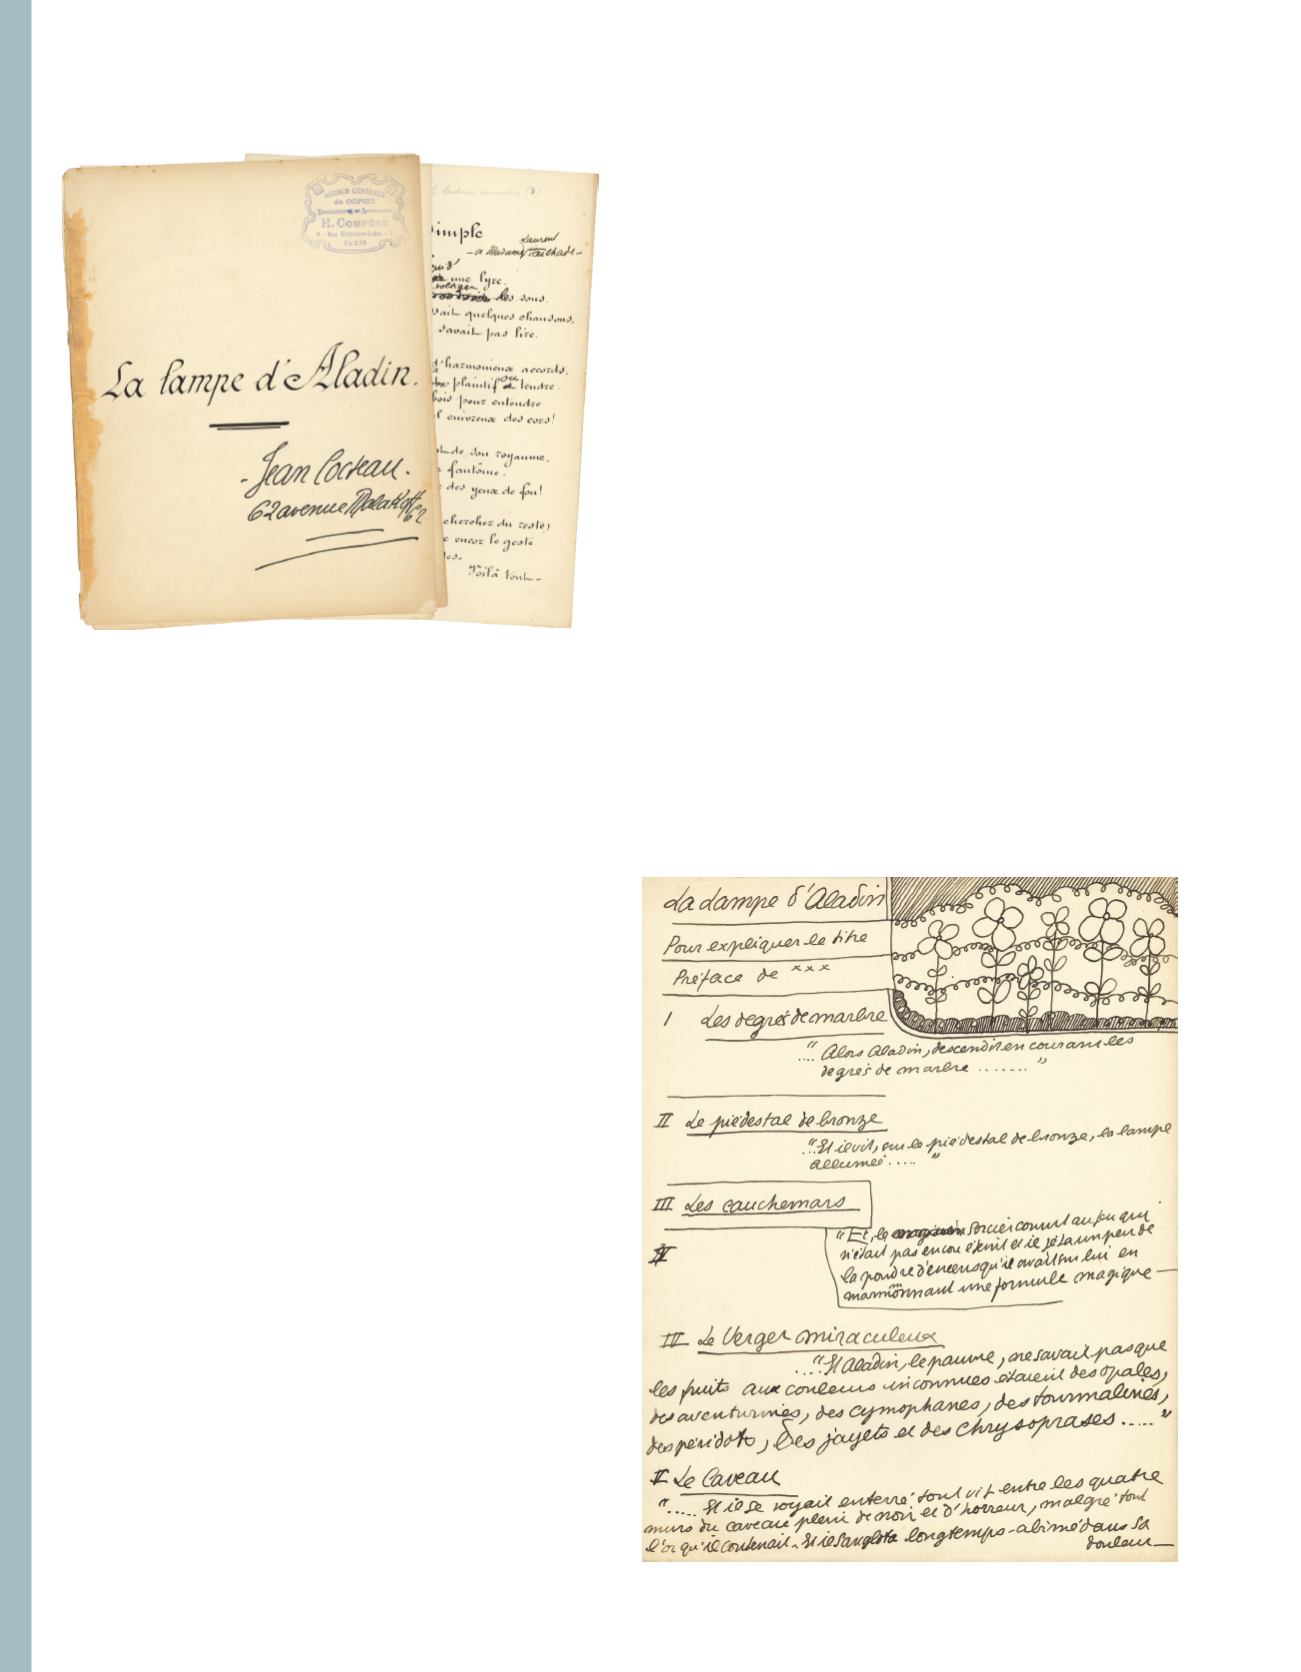 AGENCE GÉNÉRALE
de COPIES
H. COMPÈRE
PARIS
La lampe d'Aladin.
- Jean Cocteau -
62 avenue Malakoff
62
imple
Laurent
- a Madame Tailhade -
une lyre.
les sons.
vait quelques chansons,
savait pas lire.
d'harmonieux accords,
plaintif ou tendre.
bois pour entendre
l enivrement des cors!
de son royaume,
fantôme.
des yeux de fou!
chercher du reste,
encor le geste
Voilà tout -
La Lampe d'Aladin
Pour expliquer le titre
Préface de xxx
I Les degrés de marbre
".... Alors Aladin, descendit en courant les
degrés de marbre ......."
II Le piédestal de bronze
"...Et il vit, sur le piédestal de bronze, la lampe
allumée ....."
III Les cauchemars
"Et, le sorcier courut au feu qui
n'était pas encore éteint et il jeta un peu de
la poudre d'encens qu'il avait sur lui en
marmonnant une formule magique —
IV
IV Le Verger miraculeux
...."Et Aladin, le pauvre, ne savait pas que
les fruits aux couleurs inconnues étaient des opales,
des aventurines, des cymophanes, des tourmalines,
des péridots, des jayets et des chrysoprases ....."
V Le Caveau
"..... Et il se voyait enterré tout vif entre les quatre
murs du caveau plein de noir et d'horreur, malgré tout
l'or qu'il contenait - Et il sanglota longtemps - abîmé dans sa
douleur —